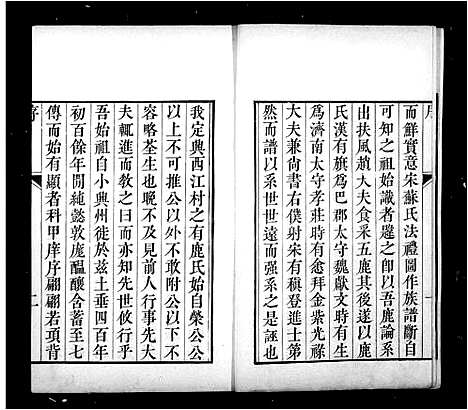 序
一
而鮮實意宋蘇氏法禮圖作族譜斷自
可知之祖始識者趨之即以吾鹿論系
出扶風趙大夫食采五鹿其後遂以鹿
氏漢有旗爲巴郡太守魏獻文時有生
爲濟南太守孝莊時有悆拜金紫光祿
大夫兼尚書右僕射宋有稹登進士第
然而譜以系世世遠而强系之是誣也
我定興西江村之有鹿氏始自榮公公
以上不可推公以外不敢附公以下不
容略荃生也晚不及見前人行事先大
夫輒進而敎之曰由先世攸行乎
吾始祖自小興州徙於茲土垂四百年
初百餘年閒純懿敦龐醞釀含蓄至七
傳而始有顯者科甲庠序翩翩若項背
序
二